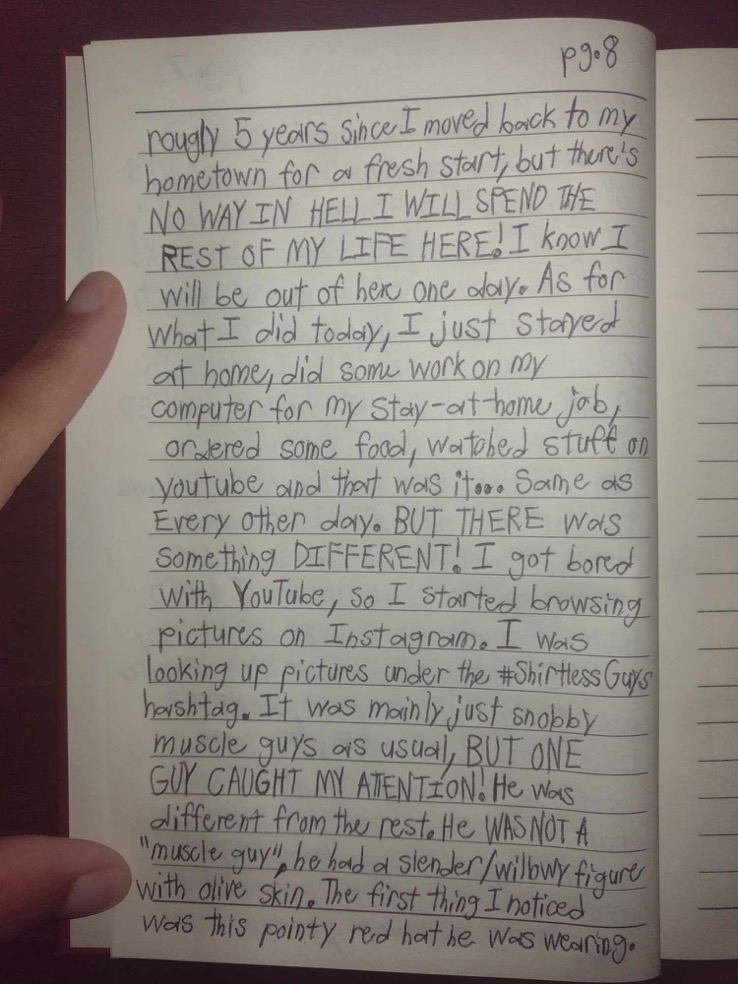 pg.8
rougly 5 years since I moved back to my
hometown for a fresh start, but there's
NO WAY IN HELL I WILL SPEND THE
REST OF MY LIFE HERE! I know I
will be out of here one day. As for
what I did today, I just stayed
at home, did some work on my
computer for my stay-at-home job,
ordered some food, watched stuff on
youtube and that was it... Same as
Every other day. BUT THERE was
something DIFFERENT! I got bored
with YouTube, so I started browsing
pictures on Instagram. I was
looking up pictures under the #ShirtlessGuys
hashtag. It was mainly just snobby
muscle guys as usual, BUT ONE
GUY CAUGHT MY ATTENTION! He was
different from the rest. He WAS NOT A
"muscle guy", he had a slender/wilbwy figure
with olive skin. The first thing I noticed
was this pointy red hat he was wearing.